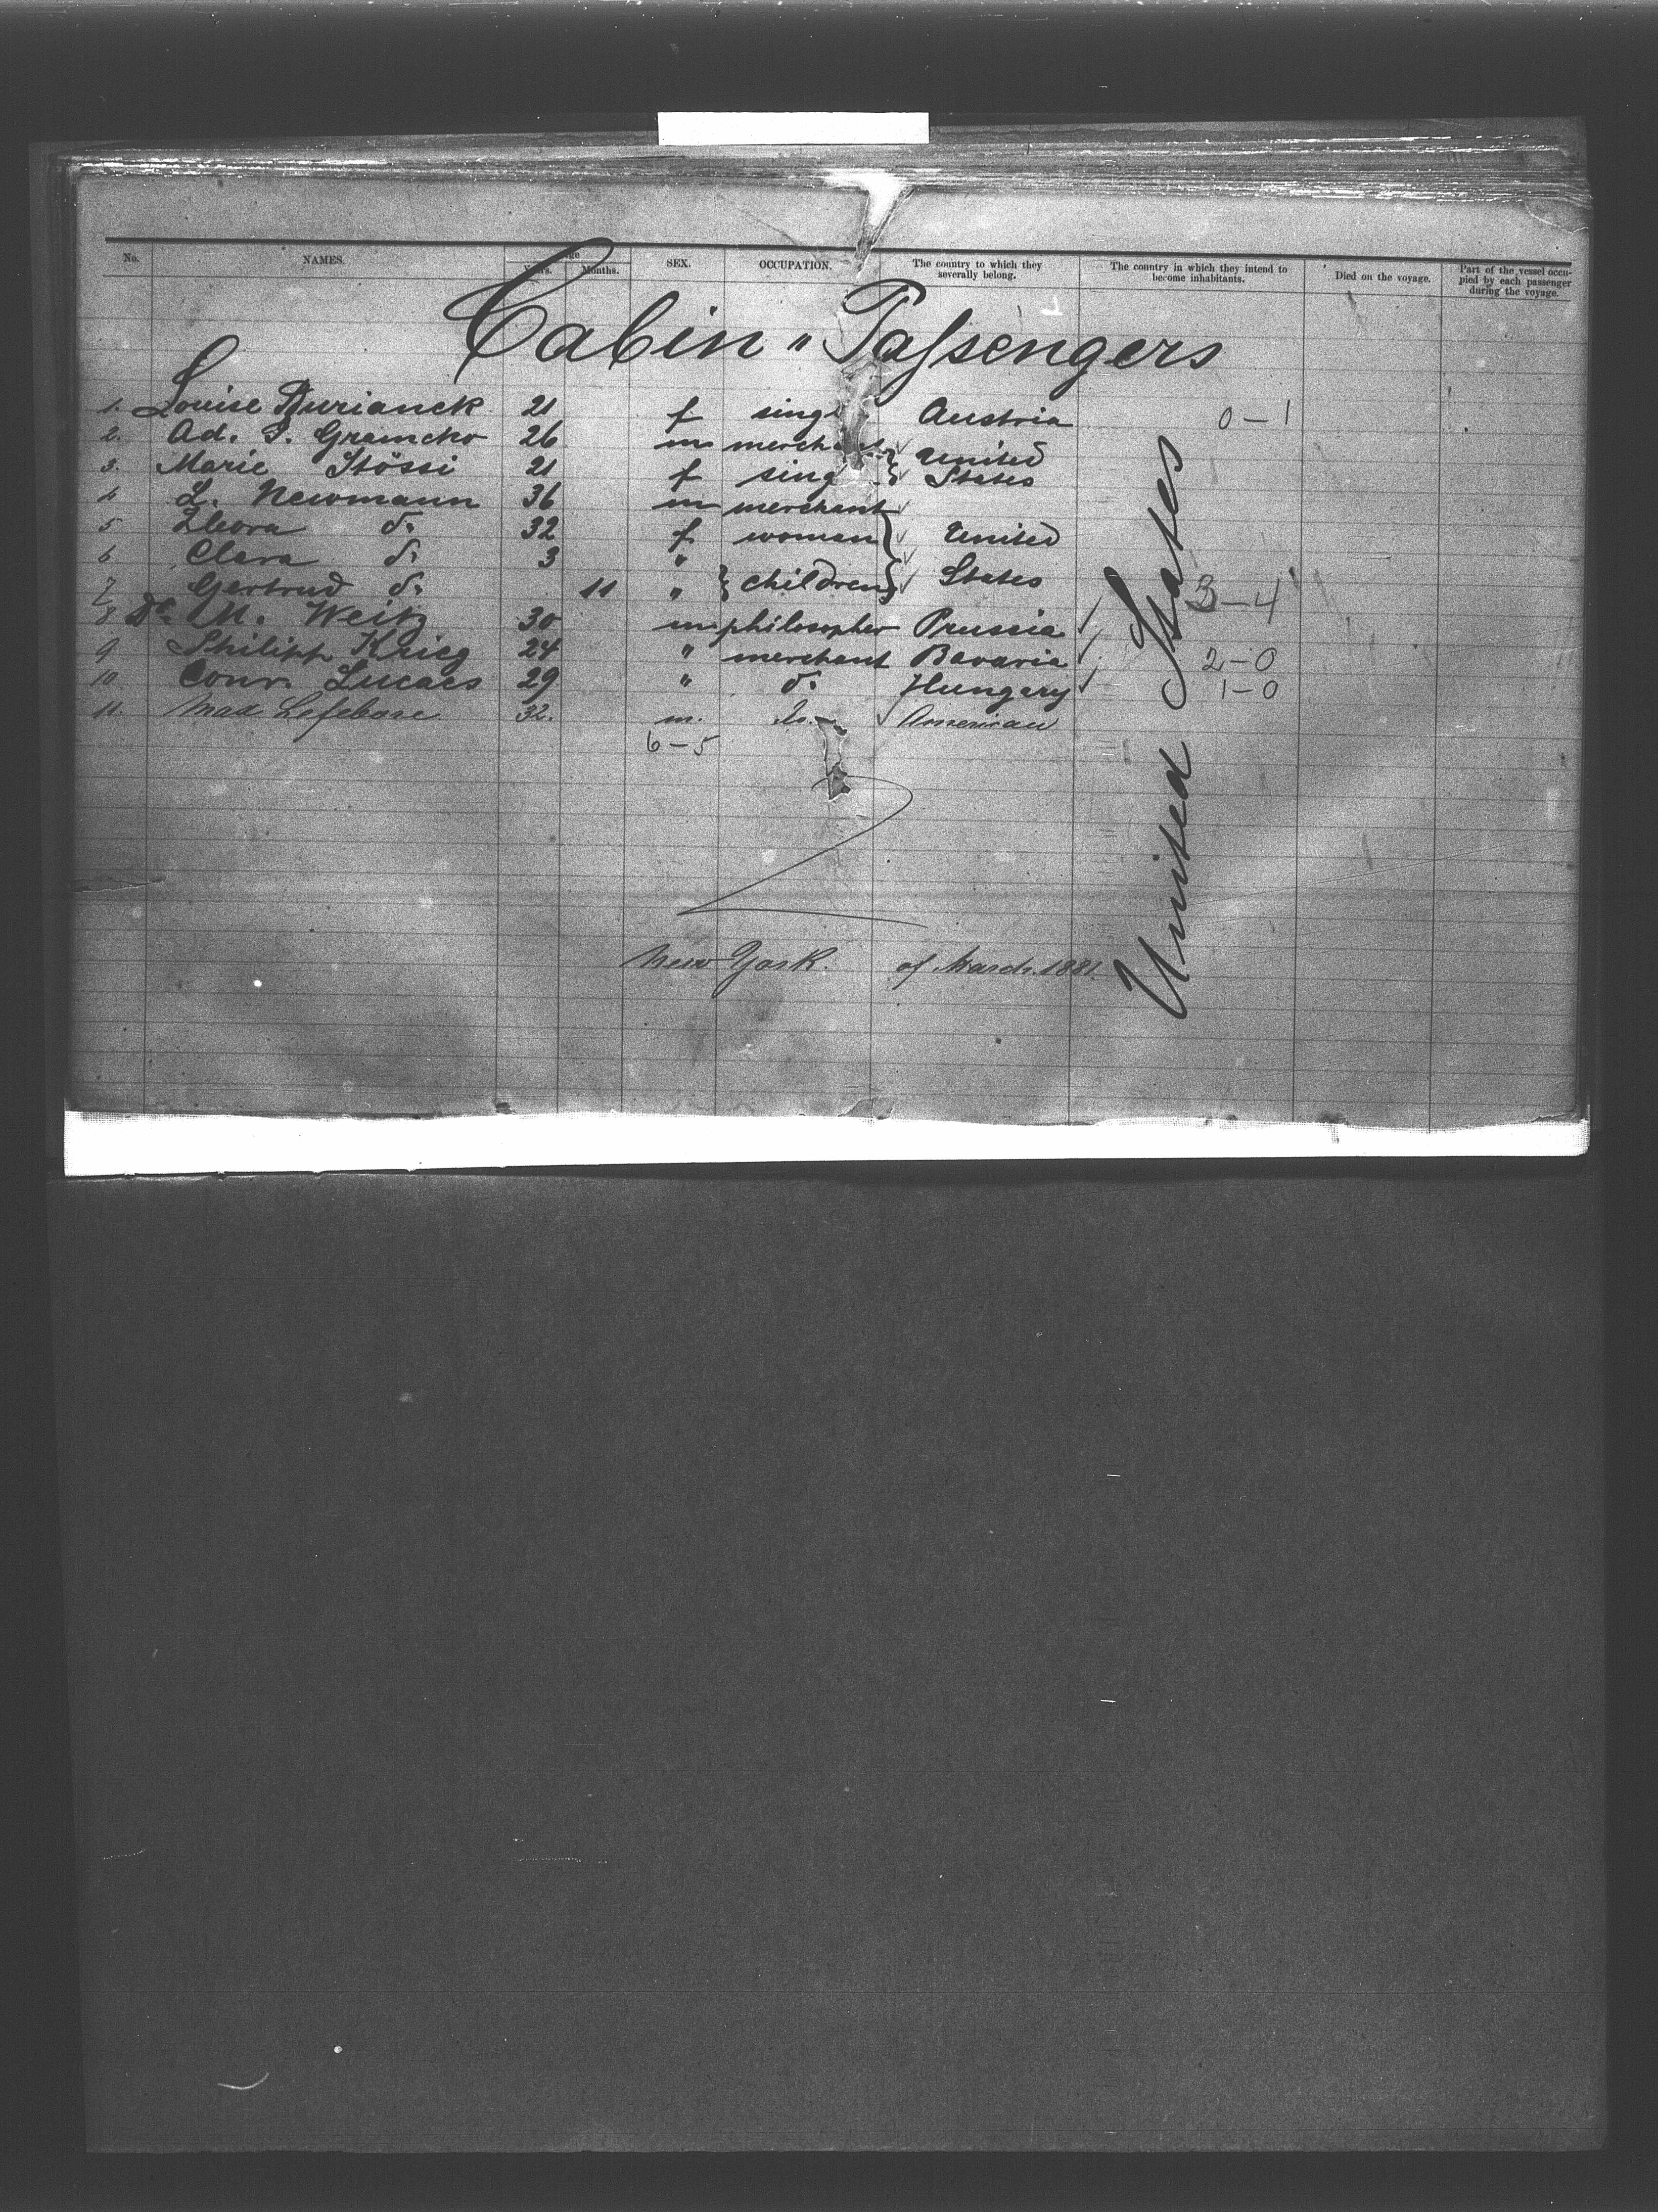 No. NAMES. Age Years. Months. SEX. OCCUPATION. The country to which they severally belong. The country in which they intend to become inhabitants. Died on the voyage. Part of the vessel occupied by each passenger during the voyage.
Cabin " Passengers
1. Louise Burianek 21 f single Austria 0-1
2. Ad. G. Gramcko 26 m merchant } United
3. Marie Stössi 21 f sing } States
4 L. Newmann 36 m merchant
5 do. 32 f woman } United
6 Clara do. 3 "
7 Gertrud do. 11 " } children } States 3-4
8 Dr. M. Weitz 30 m philosopher Prussia
9 Philipp Krieg 24 " merchant Bavaria 2-0
10 Conr. Lucacs 29 " do. Hungary 1-0
11. Lefebore 32. m. do. American
6-5
United States
New York. of March. 1881.